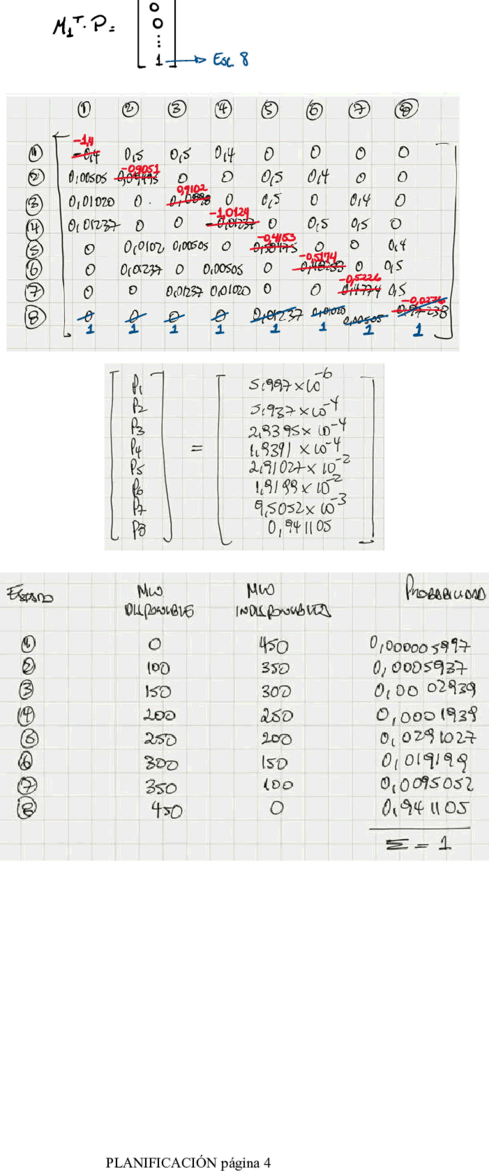 M₁ᵀ · P =
0
0
⋮
1 → Esc 8
① ② ③ ④ ⑤ ⑥ ⑦ ⑧
-1,4
① -0,4 0,5 0,5 0,4 0 0 0 0
-0,9051
② 0,00505 0 0 0,5 0,4 0 0
③ 0,01020 0 0 0,5 0 0,4 0
-1,0124
④ 0,01237 0 0 -0,01237 0 0,5 0,5 0
-0,4153
⑤ 0 0,0102 0,00505 0 0 0 0,4
-0,5174
⑥ 0 0,01237 0 0,00505 0 0 0,5
-0,5226
⑦ 0 0 0,01237 0,01020 0 0 0,4774 0,5
⑧ 0 0 0 0 0,01237 0,01020 0,00505 0,97238
1 1 1 1 1 1 1 1
P1 5,997×10⁻⁶
P2 5,937×10⁻⁴
P3 2,9395×10⁻⁴
P4 = 1,9391×10⁻⁴
P5 2,91027×10⁻²
P6 1,9199×10⁻²
P7 9,5052×10⁻³
P8 0,941105
ESTADO MW DISPONIBLE MW INDISPONIBLES PROBABILIDAD
① 0 450 0,000005997
② 100 350 0,0005937
③ 150 300 0,0002939
④ 200 250 0,0001939
⑤ 250 200 0,0291027
⑥ 300 150 0,019199
⑦ 350 100 0,0095052
⑧ 450 0 0,941105
Σ = 1
PLANIFICACIÓN página 4